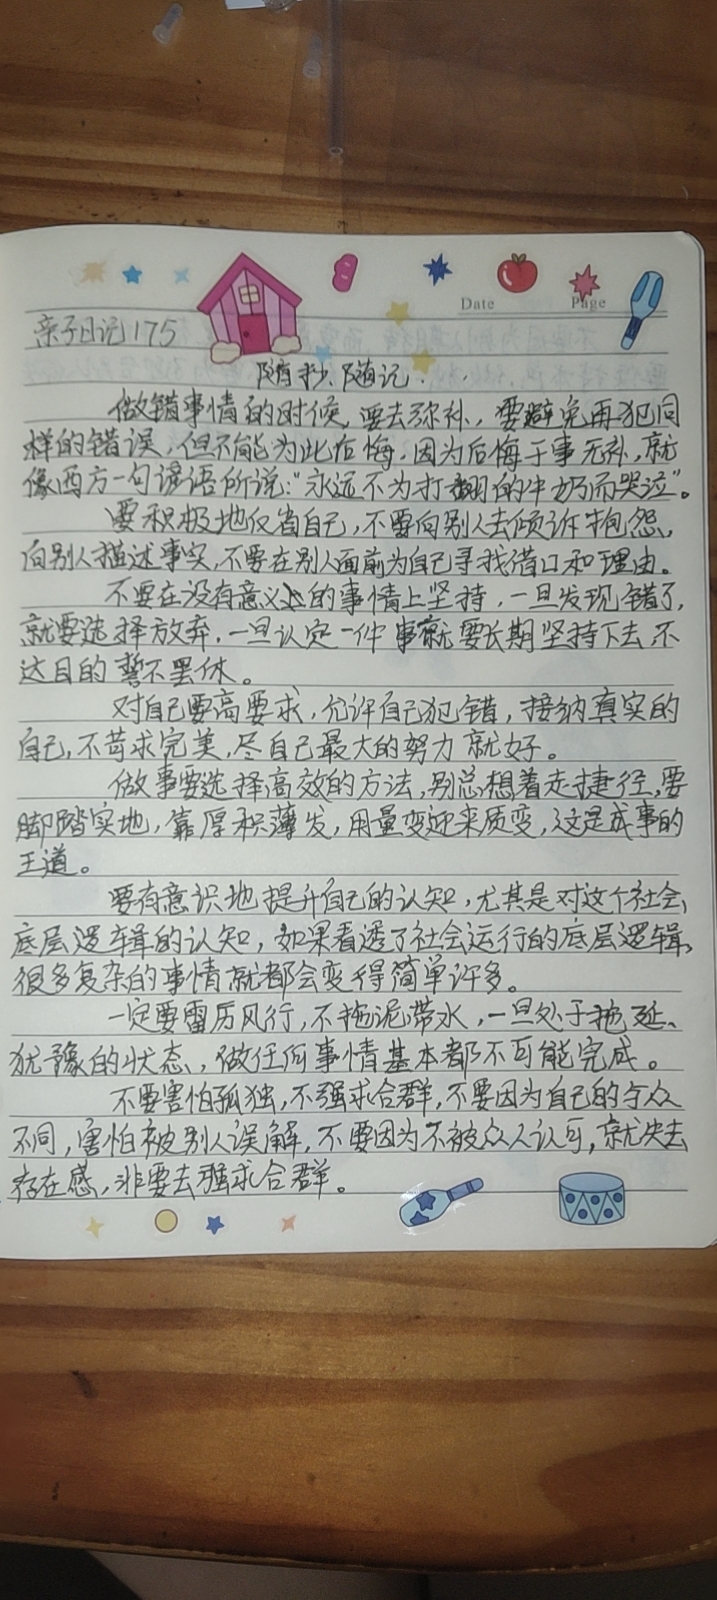 Date Page
亲子日记175
随抄、随记.
做错事情的时候,要去弥补,要避免再犯同
样的错误,但不能为此后悔,因为后悔于事无补,就
像西方一句谚语所说:“永远不为打翻的牛奶而哭泣”。
要积极地反省自己,不要向别人去倾诉抱怨,
向别人描述事实,不要在别人面前为自己寻找借口和理由。
不要在没有意义的事情上坚持,一旦发现错了,
就要选择放弃,一旦认定一件事就要长期坚持下去,不
达目的誓不罢休。
对自己要高要求,允许自己犯错,接纳真实的
自己,不苛求完美,尽自己最大的努力就好。
做事要选择高效的方法,别总想着走捷径,要
脚踏实地,靠厚积薄发,用量变迎来质变,这是成事的
王道。
要有意识地提升自己的认知,尤其是对这个社会,
底层逻辑的认知,如果看透了社会运行的底层逻辑,
很多复杂的事情就都会变得简单许多。
一定要雷厉风行,不拖泥带水,一旦处于拖延、
犹豫的状态,做任何事情基本都不可能完成。
不要害怕孤独,不强求合群,不要因为自己的与众
不同,害怕被别人误解,不要因为不被众人认可,就失去
存在感,非要去强求合群。